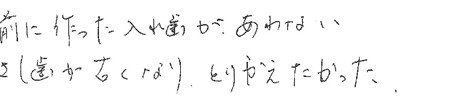 前に作った入れ歯が、あわない
(歯が古くなり、とりかえたかった.